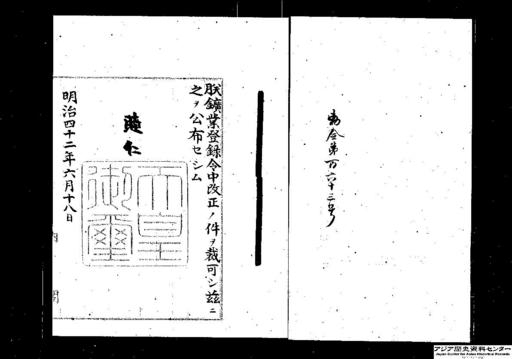 勅令第百六十二号
朕鑛業登錄令中改正ノ件ヲ裁可シ茲ニ
之ヲ公布セシム
睦仁
天皇
御璽
明治四十二年六月十八日
内閣
アジア歴史資料センター
Japan Center for Asian Historical Records